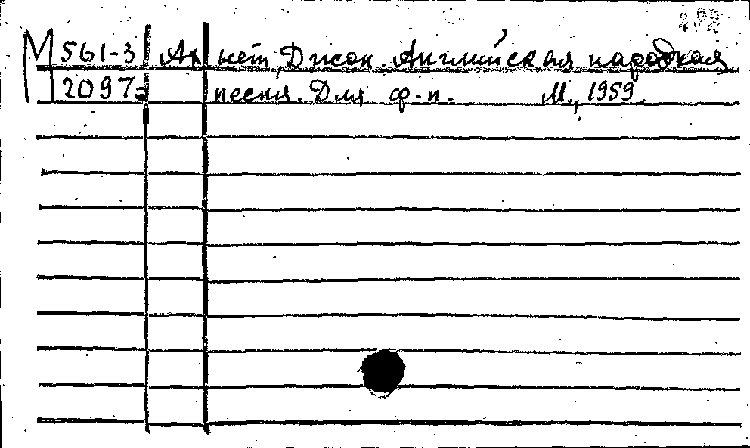 М 561-3 Арнет, Джон. Английская народная
2097 песня. Для ф-п. М., 1959